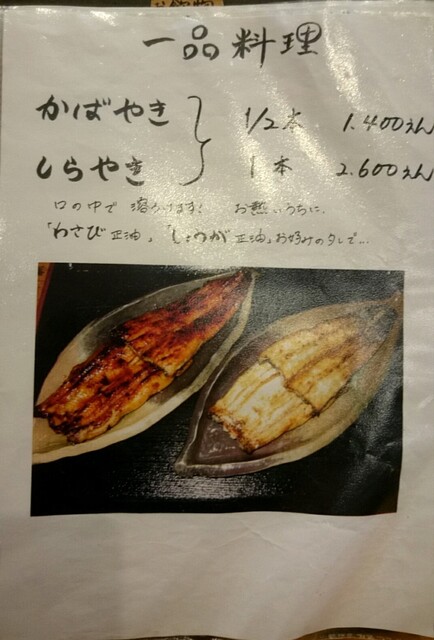 一品料理
かばやき 1/2本 1.400えん
しらやき 1本 2.600えん
口の中で 溶けます! お熱いうちに、
「わさび正油」「しょうが正油」お好みのタレで...